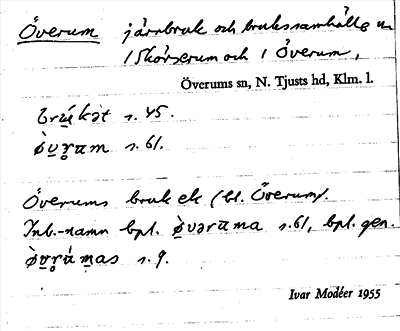 Överum järnbruk och brukssamhälle m
1 Skårserum och 1 Överum,
Överums sn, N. Tjusts hd, Klm. l.
brúkət s. 45.
s. 61.
Överums bruk ek (bl. Överum).
Inb.-namn bpl. s. 61, bpl. gen.
s. 9.
Ivar Modéer 1955